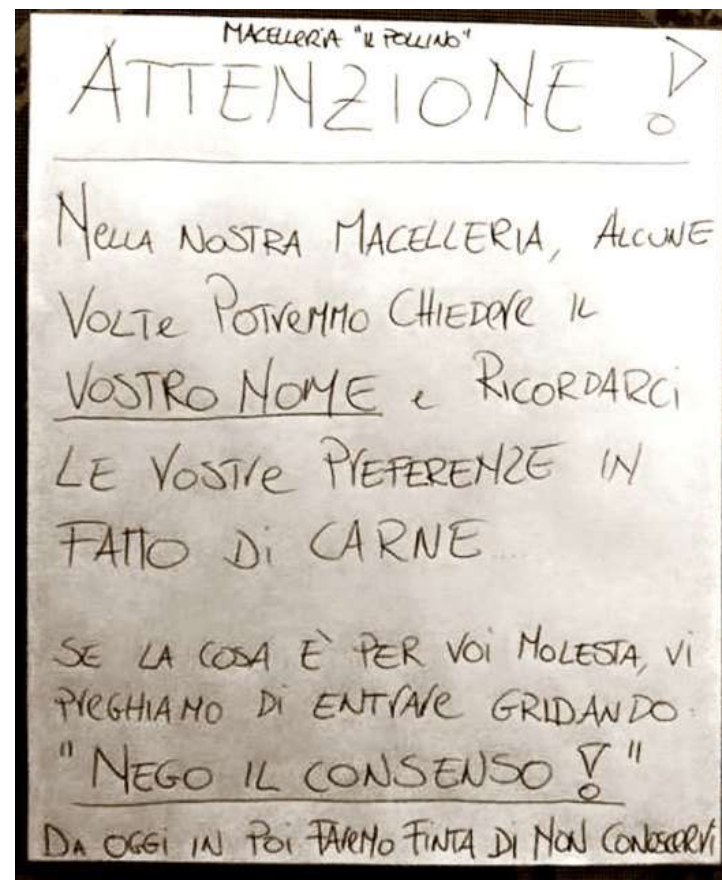 MACELLERIA "IL POLLINO"
ATTENZIONE !
NELLA NOSTRA MACELLERIA, ALCUNE
VOLTE POTREMMO CHIEDERE IL
VOSTRO NOME e RICORDARCI
LE VOSTRE PREFERENZE IN
FATTO Di CARNE...
SE LA COSA È PER VOi MOLESTA, Vi
PREGHIAMO Di ENTRARE GRIDANDO:
"NEGO IL CONSENSO!"
DA OGGi IN Poi FAREMO FINTA Di NON CONOSCERVi